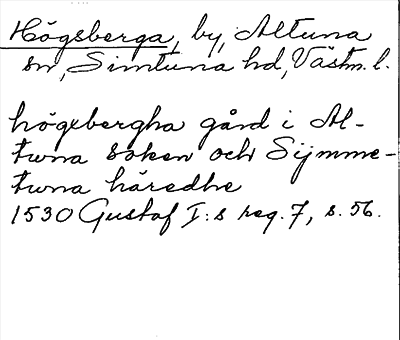 Högsberga, by, Altuna
sn, Simtuna hd, Västm. l.
högxbergha gård i Al-
tuna soken och Sijmme-
tuna häredhe
1530 Gustaf I:s reg. 7, s. 56.